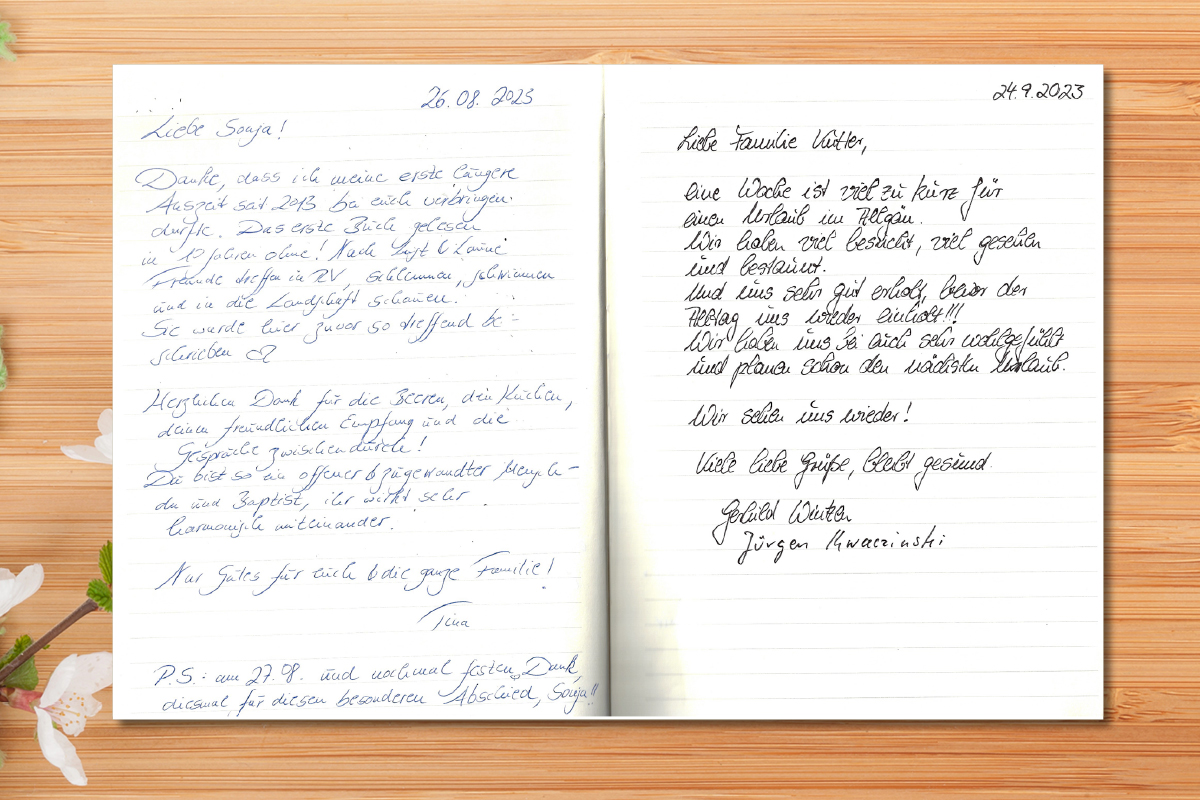 26.08.2023
Liebe Sonja!
Danke, dass ich meine erste längere
Auszeit seit 2013 bei euch verbringen
durfte. Das erste Buch gelesen
in 10 Jahren ohne! Nach Lust & Laune
Freunde treffen in RV, schlemmen, schwimmen
und in die Landschaft schauen.
Sie wurde hier zuvor so treffend be-
schrieben
Herzlichen Dank für die Beeren, den Kuchen,
deinen freundlichen Empfang und die
Gespräche zwischendurch!
Du bist so ein offener & zugewandter Mensch –
du und Baptist, ihr wirkt sehr
harmonisch miteinander.
Nur Gutes für euch & die ganze Familie!
Tina
P.S.: am 27.08. und nochmal festen Dank,
diesmal für diesen besonderen Abschied, Sonja!!
24.9.2023
Liebe Familie
eine Woche ist viel zu kurz für
einen Urlaub im Allgäu.
Wir haben viel besucht, viel gesehen
und bestaunt.
Und uns sehr gut erholt, bevor der
Alltag uns wieder einholt!!!
Wir haben uns bei euch sehr wohlgefühlt
und planen schon den nächsten Urlaub.
Wir sehen uns wieder!
Viele liebe Grüße, bleibt gesund.
Winter
Jürgen Kwaczinski